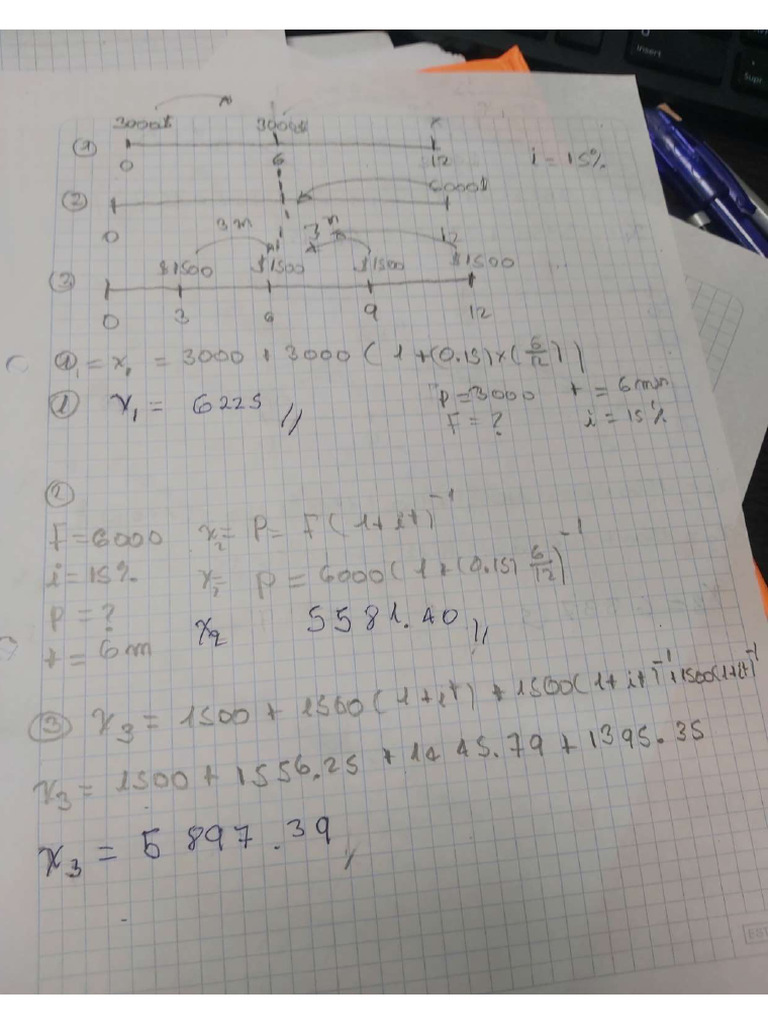 insert
Supr
3000$ 3000$ x
① 0 6 12 i = 15%
② 6000$
0 3m 3m 12
x
$1500 $1500 $1500 $1500
③ 0 3 6 9 12
①₁ = x₁ = 3000 + 3000 ( 1 + (0.15) x ( 6/12 ) )
① x₁ = 6225 //
P = 3000 t = 6 mn
F = ? i = 15%
②
F = 6000 x₂ = P = F ( 1 + it )⁻¹
i = 15% x₂ = P = 6000 ( 1 + (0.15) 6/12 )⁻¹
P = ? x₂ 5581.40 //
t = 6m
③ x₃ = 1500 + 1500 ( 1 + it ) + 1500 ( 1 + it )⁻¹ + 1500 ( 1 + it )⁻¹
x₃ = 1500 + 1556.25 + 1445.79 + 1395.35
x₃ = 5897.39 //